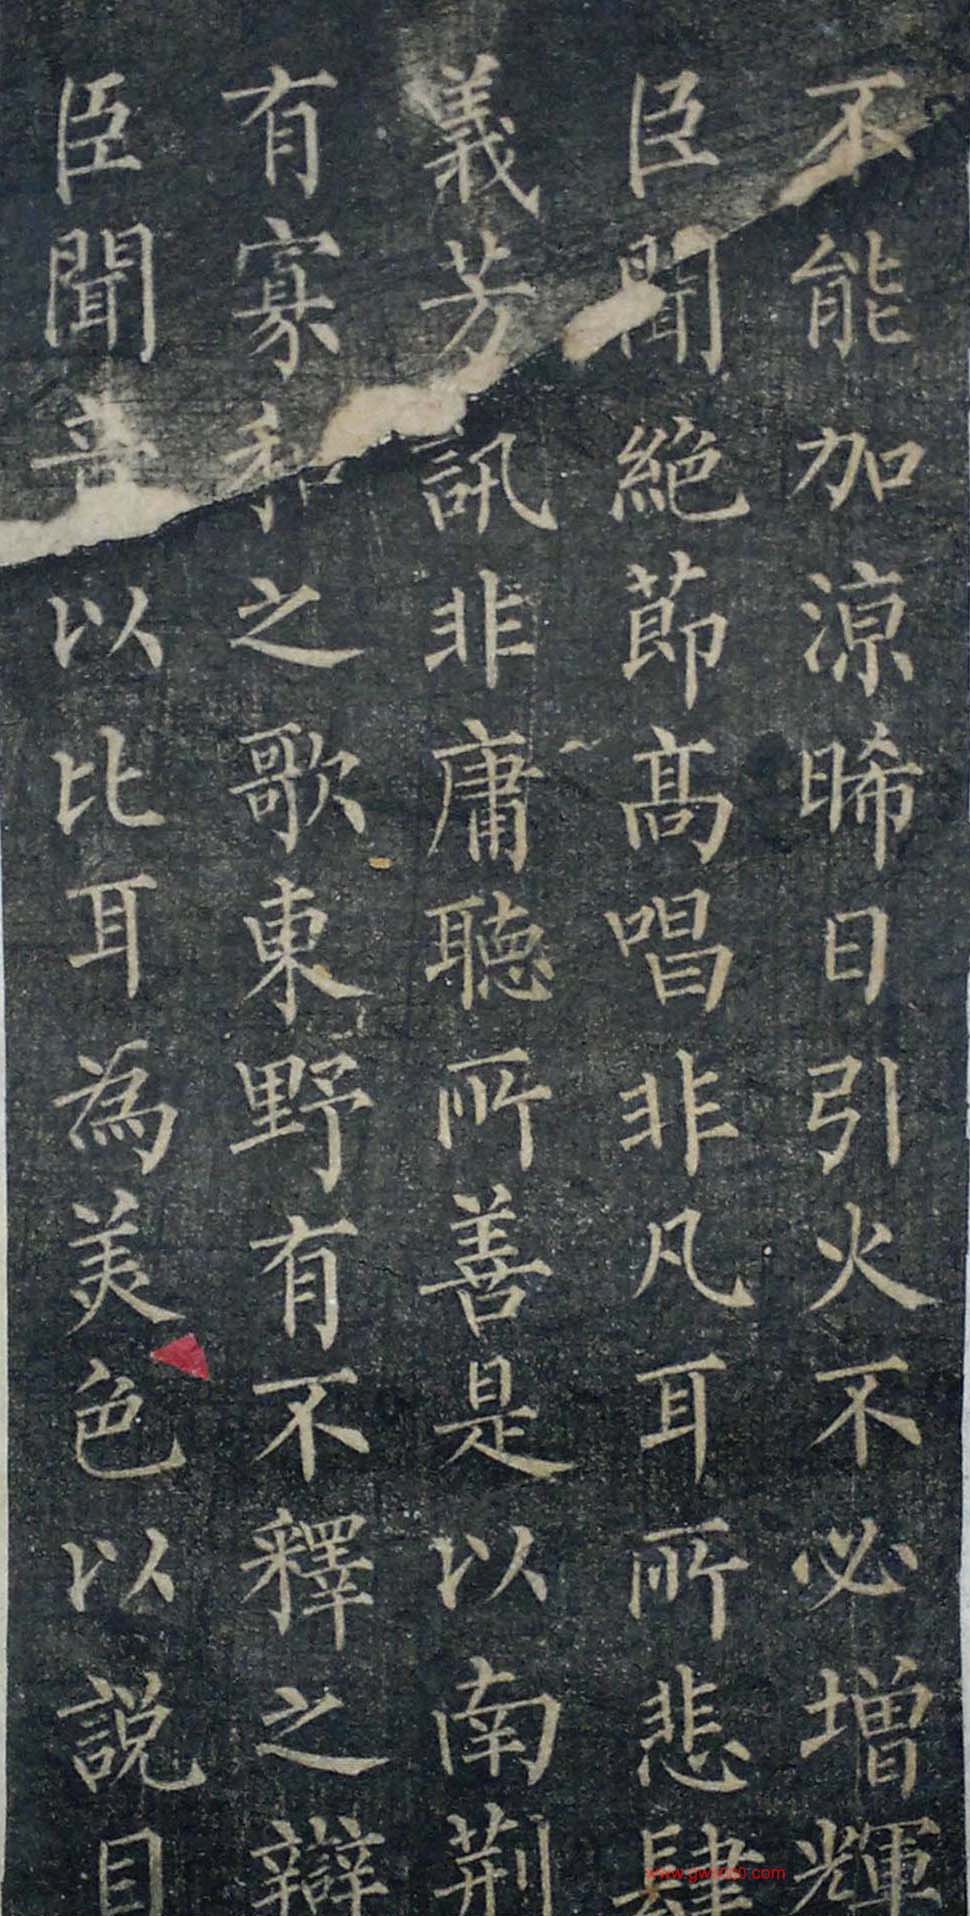 不能加涼晞日引火不必增輝
臣聞絕節高唱非凡耳所悲肆
義芳訊非庸聽所善是以南荆
有寡和之歌東野有不釋之辯
臣聞音以比耳為美色以説目